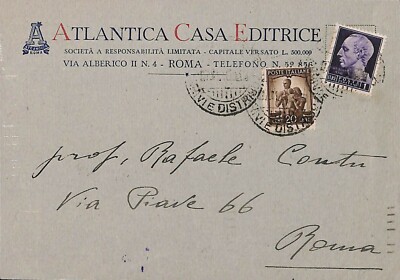 ATLANTICA CASA EDITRICE
SOCIETÀ A RESPONSABILITÀ LIMITATA - CAPITALE VERSATO L. 500.000
VIA ALBERICO II N. 4 - ROMA - TELEFONO N.
POSTE ITALIANE
20
VIE DISTRIB
VIE DISTRIB
prof. Rafaele Contu
Via Piave 66
Roma